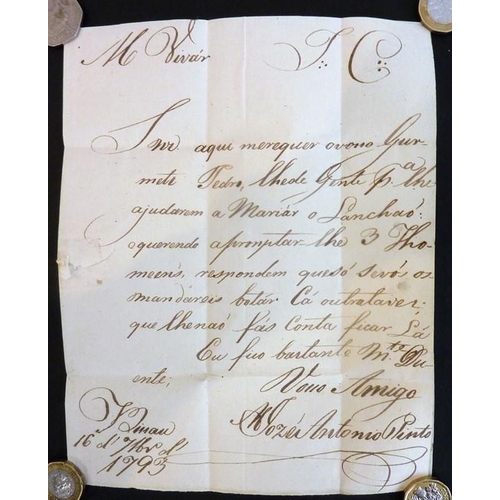 M Vivár S: C:
Inve aqui merequer ovono Gur-
mete Pedro, lhede Gente p.ª lhe
ajudarem a Mariár o Lanchaõ:
oquerendo apromptar-lhe 3 Tho-
meens, respondem quesó sevós os
mandáreis botár Cá outrataver:
quelhenaõ fás Conta ficar Lá
Eu fico bastante M.te Du
ente;
Voso Amigo
Jozéz Antonio Pinto
16 d' 7br d'
1793